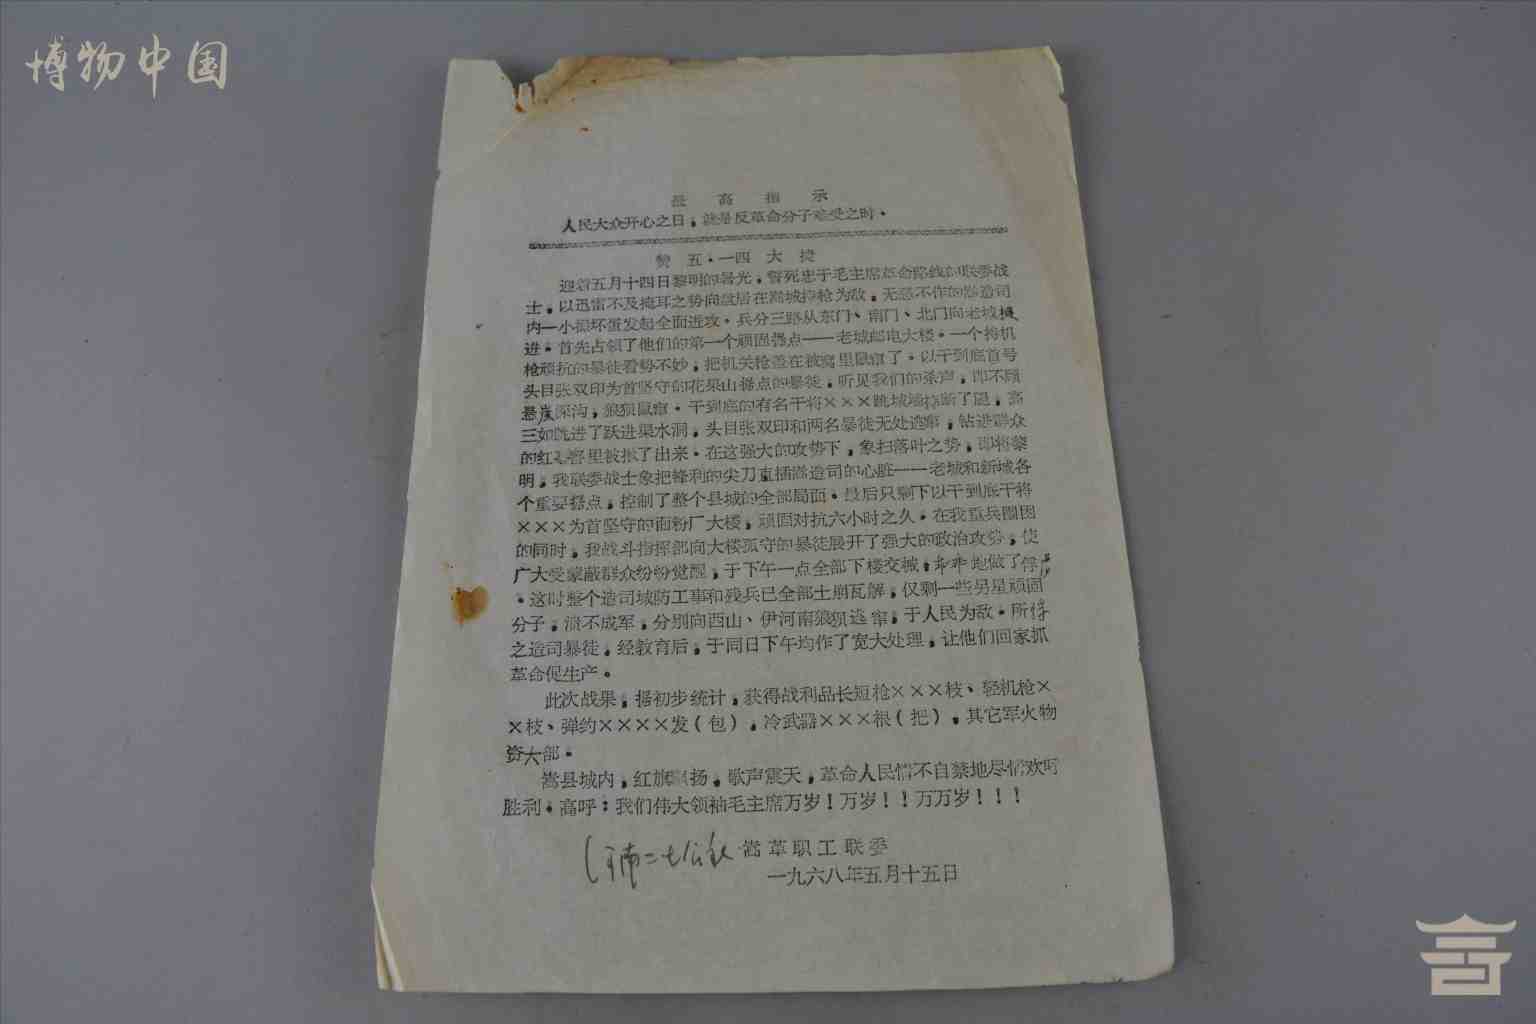 博物中国
最高指示
人民大众开心之日，就是反革命分子难受之时。
赞五·一四大捷
迎着五月十四日黎明的曙光，誓死忠于毛主席革命路线的联委战
士，以迅雷不及掩耳之势向盘居在嵩城持枪为敌，无恶不作的嵩造司
内一小撮坏蛋发起全面进攻。兵分三路从东门、南门、北门向老城挺
进。首先占领了他们的第一个顽固据点——老城邮电大楼。一个持机
枪顽抗的暴徒看势不妙，把机关枪盖在被窝里鼠窜了。以干到底首号
头目张双印为首坚守的花果山据点的暴徒，听见我们的杀声，即不顾
悬崖深沟，狼狈鼠窜。干到底的有名干将×××跳城墙摔断了腿，高
三如跳进了跃进渠水洞，头目张双印和两名暴徒无处逃窜，钻进群众
的红薯窖里被揪了出来。在这强大的攻势下，象扫落叶之势，即将黎
明，我联委战士象把锋利的尖刀直插嵩造司的心脏——老城和新城各
个重要据点，控制了整个县城的全部局面。最后只剩下以干到底干将
×××为首坚守的面粉厂大楼，顽固对抗六小时之久。在我重兵围困
的同时，我战斗指挥部向大楼孤守的暴徒展开了强大的政治攻势，使
广大受蒙蔽群众纷纷觉醒，于下午一点全部下楼交械，乖乖地做了俘虏
。这时整个造司城防工事和残兵已全部土崩瓦解，仅剩一些另星顽固
分子，溃不成军，分别向西山、伊河南狼狈逃窜，于人民为敌。所俘
之造司暴徒，经教育后，于同日下午均作了宽大处理，让他们回家抓
革命促生产。
此次战果，据初步统计，获得战利品长短枪×××枝、轻机枪×
×枝、弹约××××发（包），冷武器×××根（把），其它军火物
资大部。
嵩县城内，红旗飘扬，歌声震天，革命人民情不自禁地尽情欢呼
胜利。高呼：我们伟大领袖毛主席万岁！万岁！！万万岁！！！
嵩革职工联委
一九六八年五月十五日